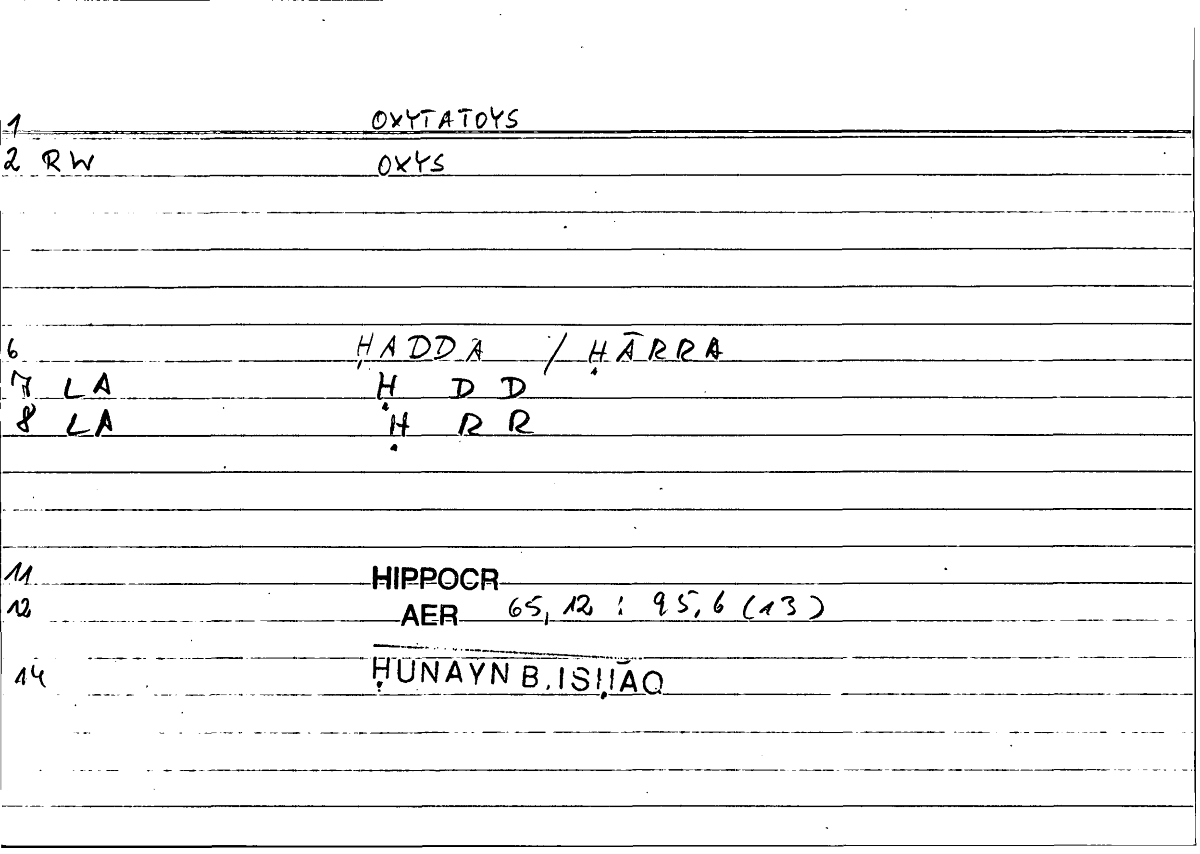 1 OXYTATOYS
2 RW OXYS
6 ḤADDA / ḤĀRRA
7 LA Ḥ D D
8 LA Ḥ R R
11 HIPPOCR
12 AER 65,12 : 95,6 (13)
14 ḤUNAYN B. ISḤĀQ